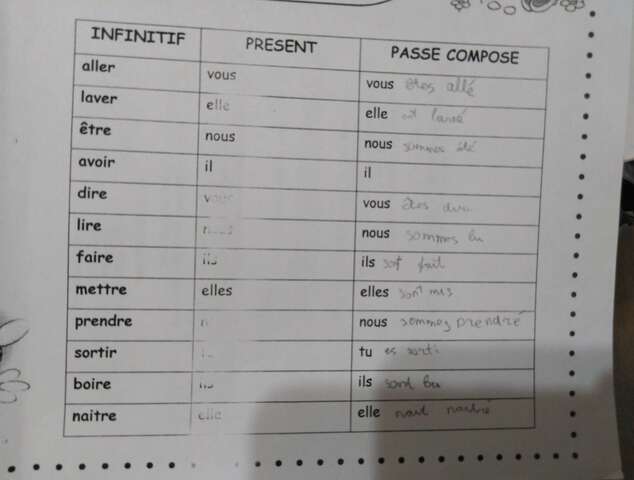 INFINITIF PRESENT PASSE COMPOSE
aller vous vous êtes allé
laver elle elle est lavé
être nous nous sommes été
avoir il il
dire vous vous êtes
lire nous nous sommes lu
faire ils ils sont fait
mettre elles elles sont mis
prendre nous sommes prendré
sortir tu es sorti
boire ils ils sont bu
naitre elle elle